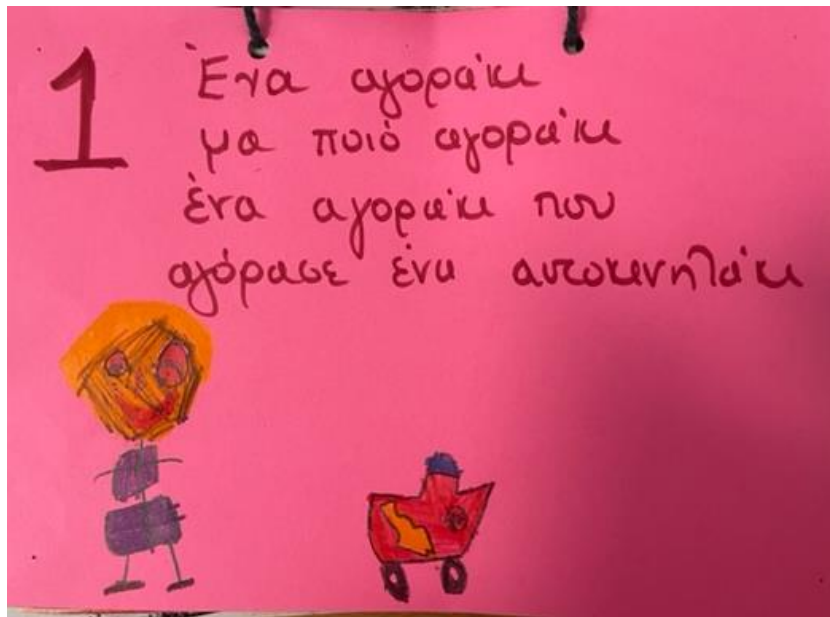 1
Ένα αγοράκι
μα ποιό αγοράκι
ένα αγοράκι που
αγόρασε ένα αυτοκινητάκι